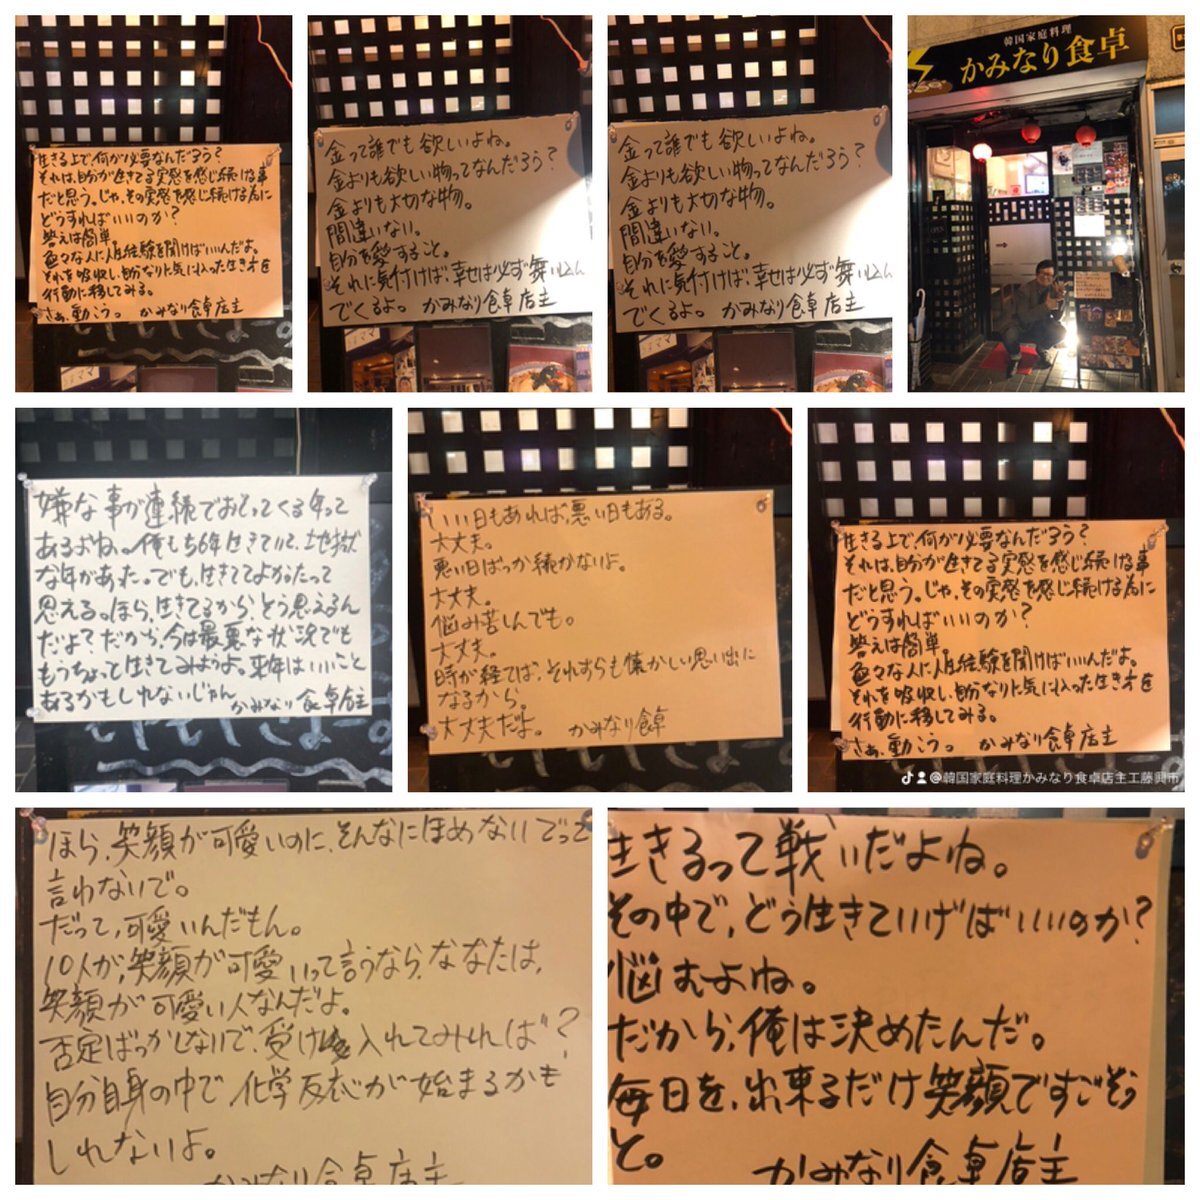 生きる上で何が必要なんだろう?
それは、自分が生きてる実感を感じ続ける事
だと思う。じゃ、その実感を感じ続ける為に
どうすればいいのか?
答えは簡単。
色々な人に人生経験を聞けばいいんだよ。
それを吸収し、自分なりに気に入った生き方を
行動に移してみる。
さあ、動こう。 かみなり食卓店主
金って誰でも欲しいよね。
金よりも欲しい物ってなんだろう?
金よりも大切な物。
間違いない。
自分を愛すること。
それに気付けば、幸せは必ず舞い込ん
でくるよ。 かみなり食卓店主
金って誰でも欲しいよね。
金よりも欲しい物ってなんだろう?
金よりも大切な物。
間違いない。
自分を愛すること。
それに気付けば、幸せは必ず舞い込ん
でくるよ。 かみなり食卓店主
韓国家庭料理
かみなり食卓
嫌な事が連続でおそってくる年って
あるよね。俺も56年生きていて、地獄
な年があった。でも、生きててよかったって
思える。ほら、生きてるから、そう思えるん
だよ?だから、今は最悪な状況でも
もうちょっと生きてみようよ。来年はいいこと
あるかもしれないじゃん かみなり食卓店主
いい日もあれば、悪い日もある。
大丈夫。
悪い日ばっか続かないよ。
大丈夫。
悩み苦しんでも。
大丈夫。
時が経てば、それすらも懐かしい思い出に
なるから。
大丈夫だよ。 かみなり食卓
生きる上で何が必要なんだろう?
それは、自分が生きてる実感を感じ続ける事
だと思う。じゃ、その実感を感じ続ける為に
どうすればいいのか?
答えは簡単。
色々な人に人生経験を聞けばいいんだよ。
それを吸収し、自分なりに気に入った生き方を
行動に移してみる。
さあ、動こう。 かみなり食卓店主
@韓国家庭料理かみなり食卓店主工藤興市
ほら、笑顔が可愛いのに、そんなにほめないでって
言わないで。
だって、可愛いんだもん。
10人が、笑顔が可愛いって言うなら、あなたは、
笑顔が可愛い人なんだよ。
否定ばっかしないで、受け入れてみれば?
自分自身の中で、化学反応が始まるかも
しれないよ。
かみなり食卓店主
生きるって戦いだよね。
その中で、どう生きていけばいいのか?
悩むよね。
だから、俺は決めたんだ。
毎日を、出来るだけ笑顔ですごそう
と。
かみなり食卓店主